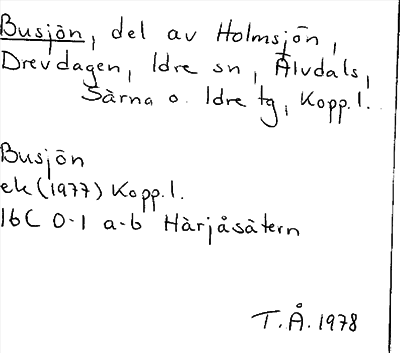 Busjön, del av Holmsjön,
Drevdagen, Idre sn, Älvdals,
Särna o. Idre tg, Kopp.l.
Busjön
ek (1977) Kopp.l.
16C 0-1 a-b Härjåsätern
T.Å. 1978